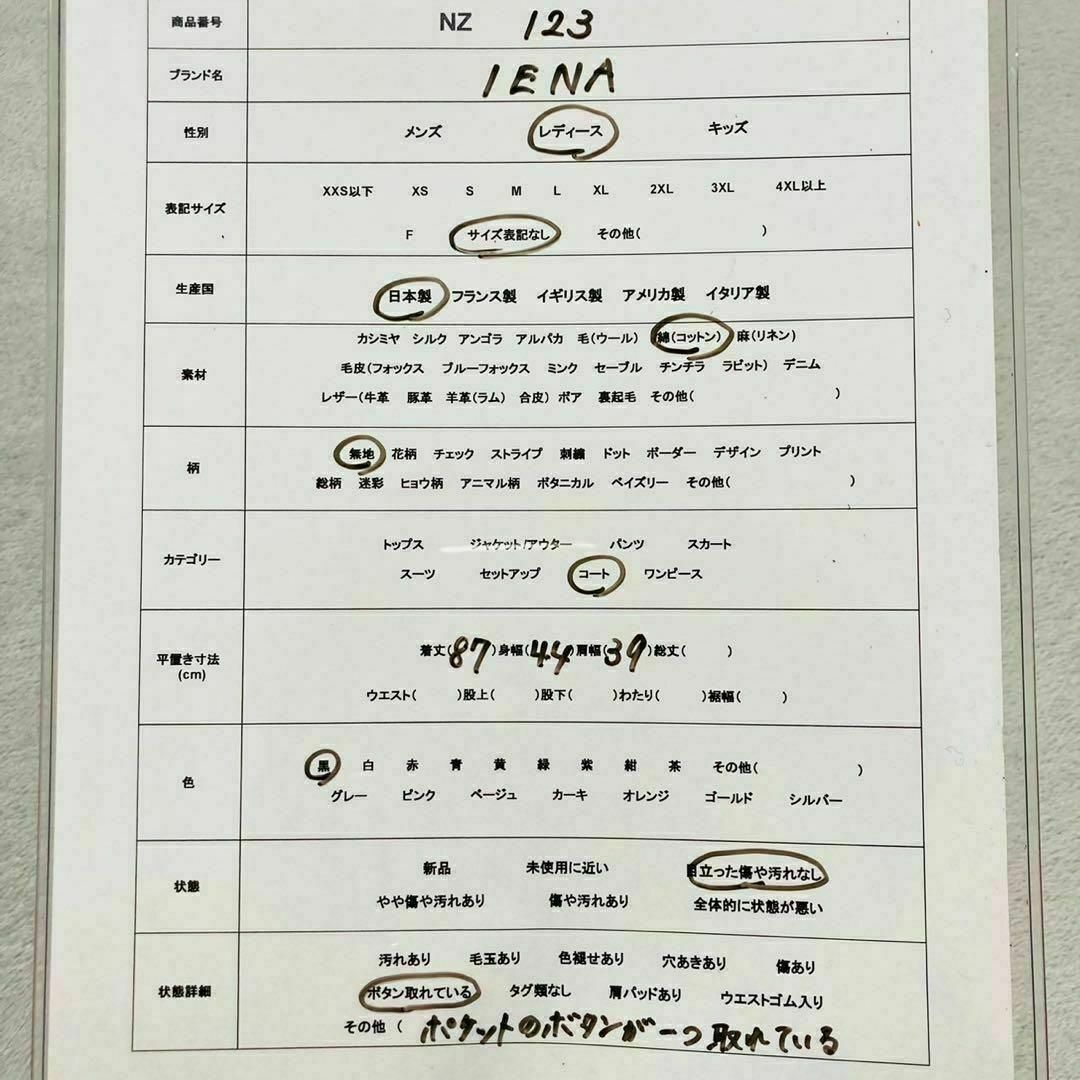 商品番号 NZ 123
ブランド名 IENA
性別 メンズ レディース キッズ
表記サイズ XXS以下 XS S M L XL 2XL 3XL 4XL以上
F サイズ表記なし その他( )
生産国 日本製 フランス製 イギリス製 アメリカ製 イタリア製
素材 カシミヤ シルク アンゴラ アルパカ 毛(ウール) 綿(コットン) 麻(リネン)
毛皮(フォックス ブルーフォックス ミンク セーブル チンチラ ラビット) デニム
レザー(牛革 豚革 羊革(ラム) 合皮) ボア 裏起毛 その他( )
柄 無地 花柄 チェック ストライプ 刺繍 ドット ボーダー デザイン プリント
総柄 迷彩 ヒョウ柄 アニマル柄 ボタニカル ペイズリー その他( )
カテゴリー トップス ジャケット/アウター パンツ スカート
スーツ セットアップ コート ワンピース
平置き寸法 着丈(87)身幅(44)肩幅(39)総丈( )
(cm) ウエスト( )股上( )股下( )わたり( )裾幅( )
色 黒 白 赤 青 黄 緑 紫 紺 茶 その他( )
グレー ピンク ベージュ カーキ オレンジ ゴールド シルバー
状態 新品 未使用に近い 目立った傷や汚れなし
やや傷や汚れあり 傷や汚れあり 全体的に状態が悪い
状態詳細 汚れあり 毛玉あり 色褪せあり 穴あきあり 傷あり
ボタン取れている タグ類なし 肩パッドあり ウエストゴム入り
その他 ( ポケットのボタンが一つ取れている